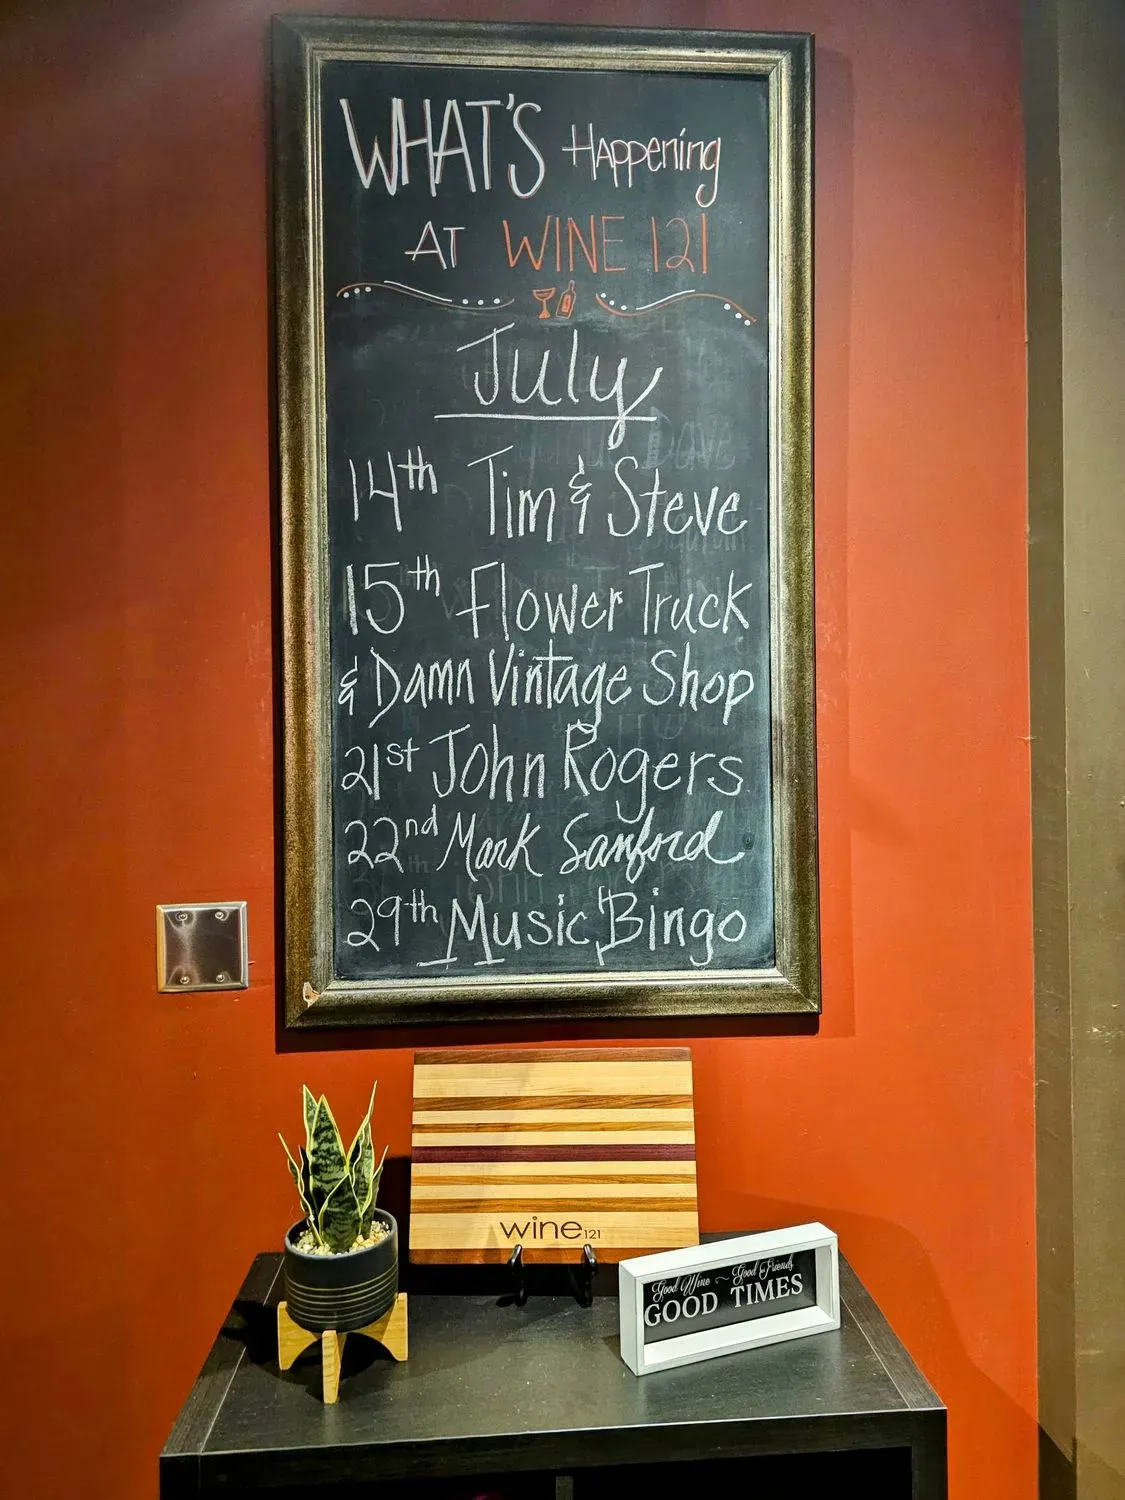 WHAT'S Happening
AT WINE 121
July
14th Tim & Steve
15th Flower Truck
& Damn Vintage Shop
21st John Rogers
22nd Mark Sanford
29th Music Bingo
wine121
Good Wine ~ Good Friends
GOOD TIMES